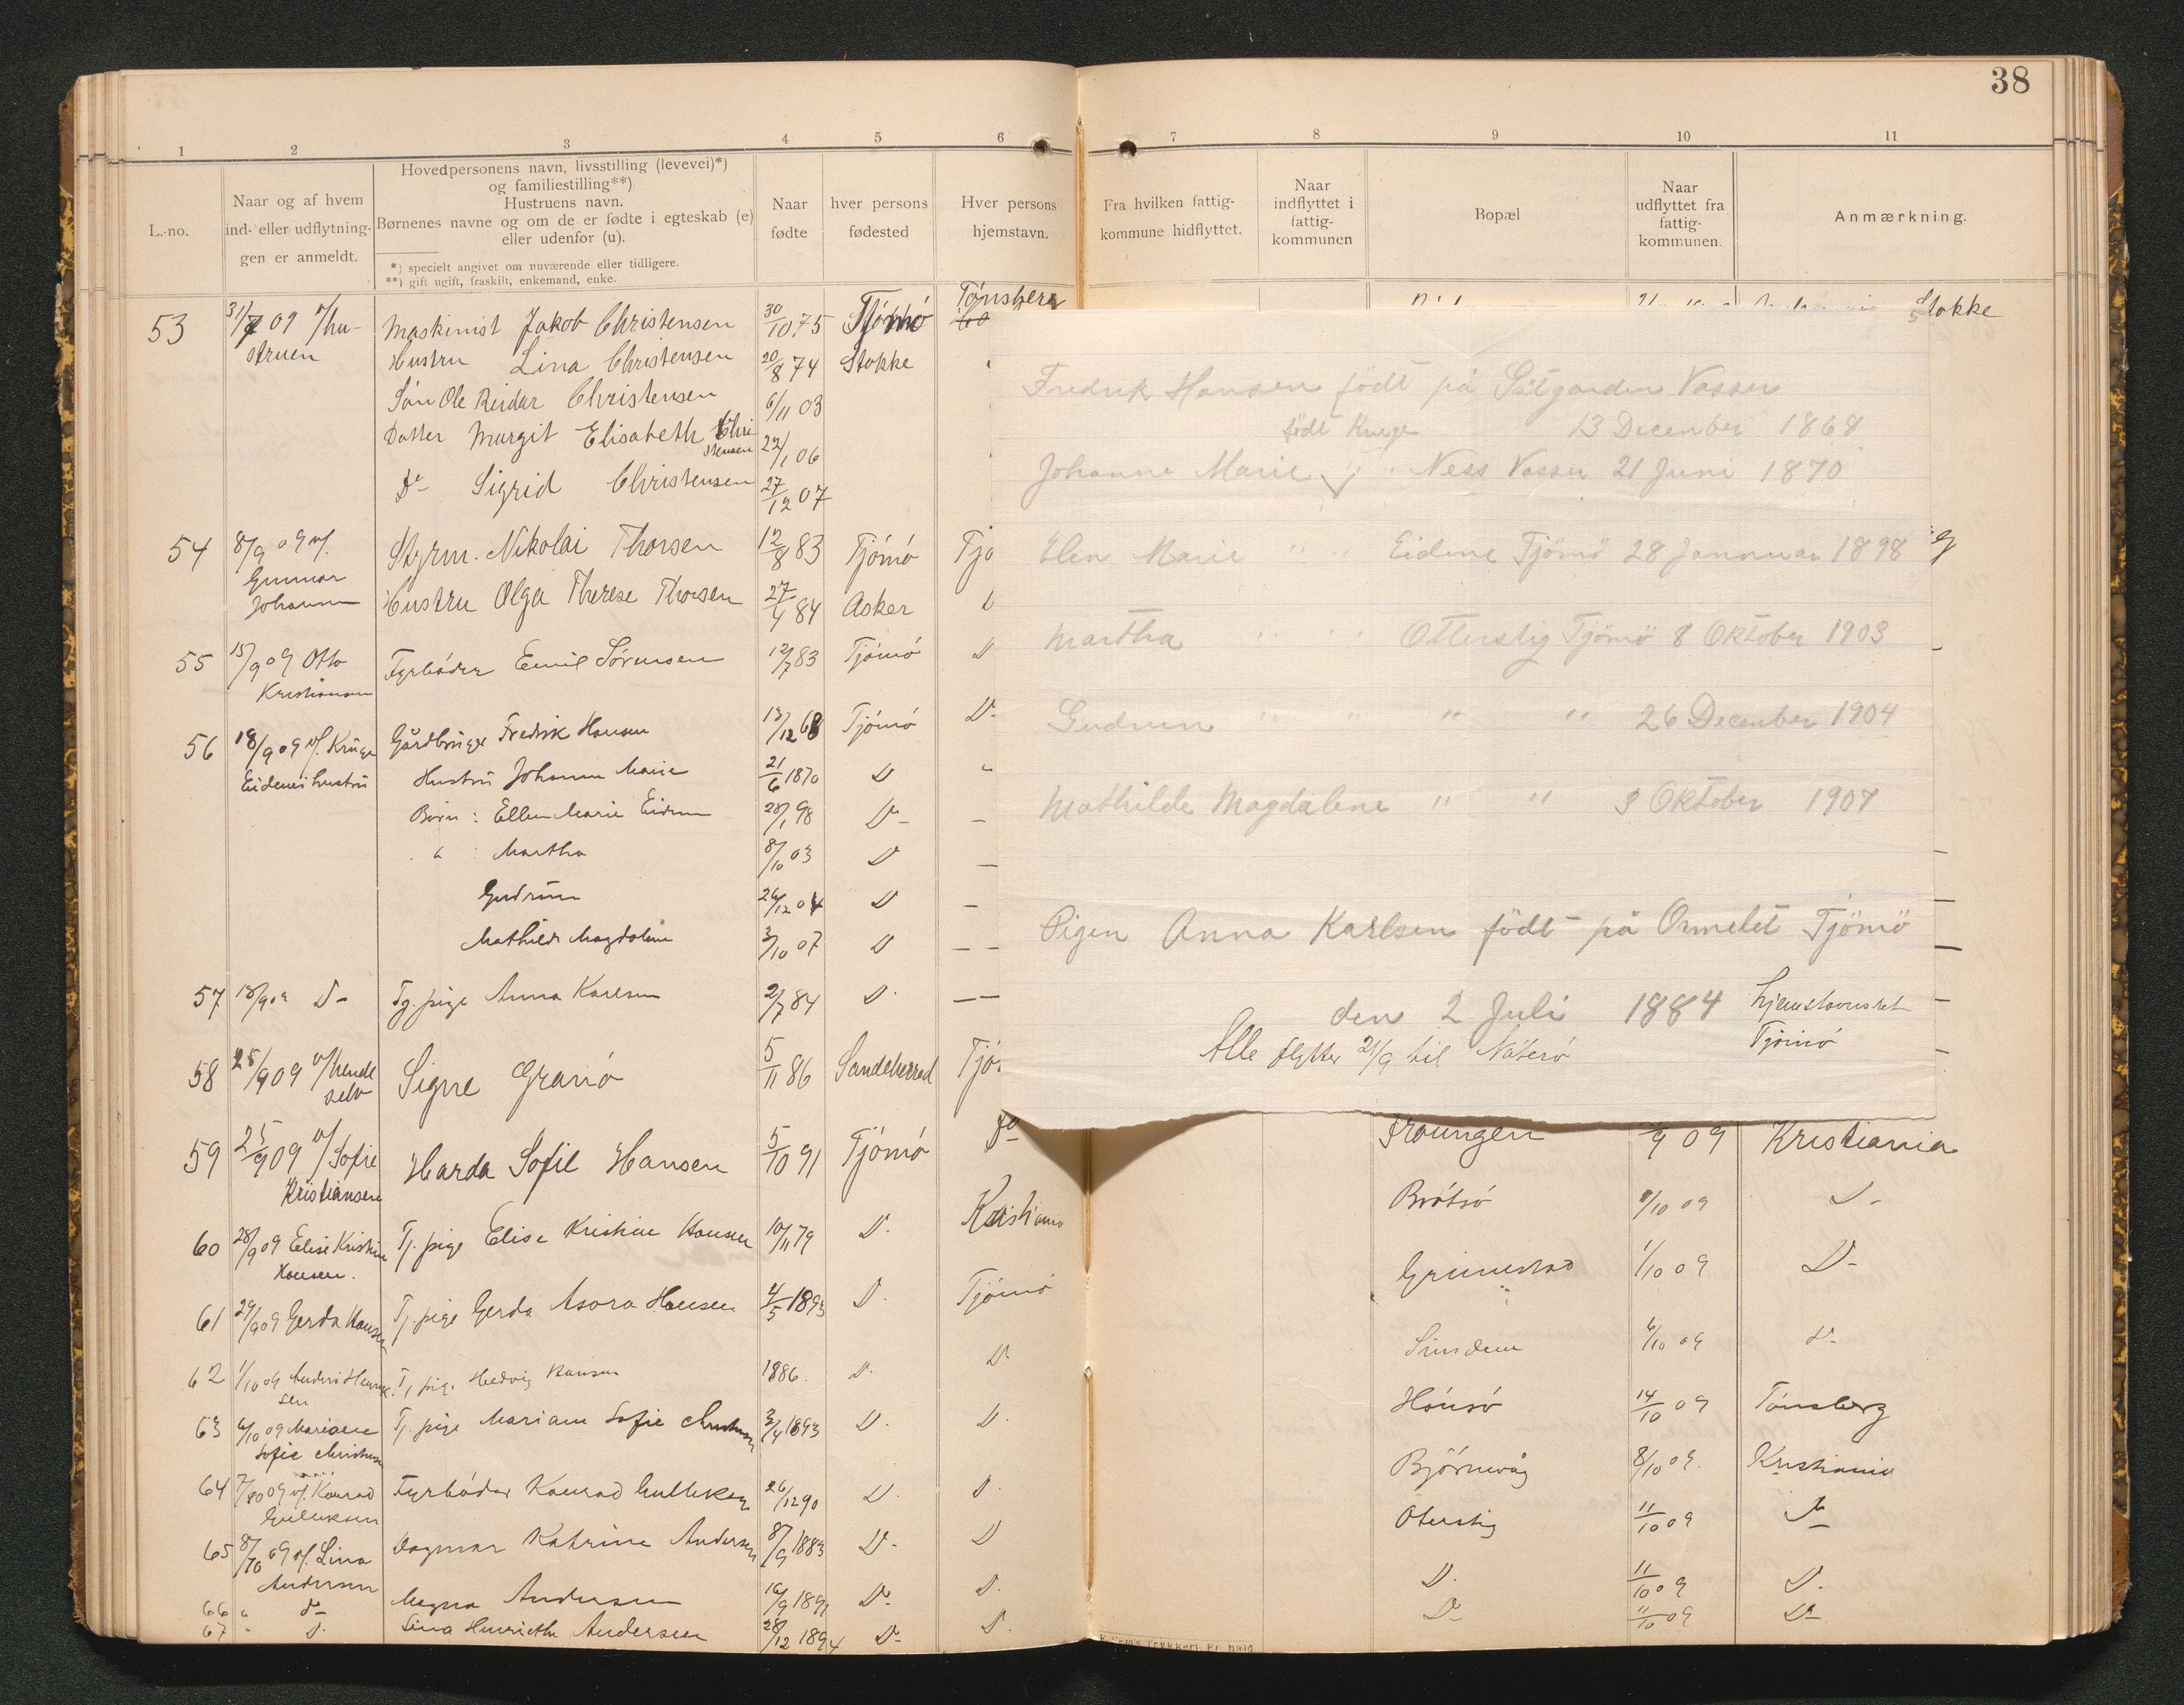 38
1 2 3 4 5 6 7 8 9 10 11
L.-no.
Naar og af hvem
ind- eller udflytnin-
gen er anmeldt.
Hovedpersonens navn, livsstilling (levevei)*)
og familiestilling**)
Hustruens navn.
Børnenes navne og om de er fødte i egteskab (e)
eller udenfor (u).
*) specielt angivet om nuværende eller tidligere.
**) gift ugift, fraskilt, enkemand, enke.
Naar
fødte
hver persons
fødested
Hver persons
hjemstavn.
Fra hvilken fattig-
kommune hidflyttet.
Naar
indflyttet i
fattig-
kommunen
Bopæl
Naar
udflyttet fra
fattig-
kommunen.
Anmærkning.
53 31/7 09 v/hu- Maskinist Jakob Christensen 30/10 75 Tjömö Tönsberg Stokke
struen Hustru Lina Christensen 20/8 74 Stokke
Sön Ole Reidar Christensen 6/11 03
Datter Margit Elisabeth Chri
stensen 22/1 06
Do Sigrid Christensen 27/12 07
54 8/9 09 v/. Styrm. Nikolai Thorsen 12/8 83 Tjömö Tjö
Gunnar
Johansen Hustru Olga Therese Thorsen 27/4 84 Asker D
55 15/9 09 Otto Fyrböder Emil Sörensen 12/7 83 Tjömö D
Kristiansen
56 18/9 09 v/. Krüge Gårdbruger Fredrik Hansen 13/12 68 Tjömö D-
Eidenes hustru Hustru Johanne Marie 21/6 1870 D "
Börn : Ellen Marie Eidene 28/1 98 D- –
" : Martha 8/10 03 D –
Gudrun 26/12 04 D –
Mathilde Magdalene 3/10 07 D – –
57 18/9 09 D- Tj. pige Anna Karlsen 2/7 84 D. – –
58 25/9 09 v/hende
selv Signe Granö 5/11 86 Sandeherred Tjö
59 25/9 09 v/Sofie
Kristiansen Harda Sofie Hansen 5/10 91 Tjömö Do
60 28/9 09 Elise Kristine
Hansen. Tj. pige Elise Kristine Hansen 10/11 79 D. Kristiania
61 29/9 09 Gerda Hansen Tj. pige Gerda Asora Hansen 4/5 1893 D. Tjömö
62 1/10 09 Anders Henrik-
sen Tj pige Hedvig Hansen 1886. D. D.
63 6/10 09 Mariane
Sofie Tj. pige Mariane Sofie 3/4 1893 D. D.
64 7/10 09 v/. Konrad
Gulliksen Fyrböder Konrad Gulliksen 26/12 90 D. D.
65 8/10 09 v/. Lina
Andersen Dagmar Katrine Andersen 8/9 1883 D- D
66 " d- Magna Andersen 16/9 1891 D- D.
67 " D. Lina Henriette Andersen 28/12 1894 D- D.
Fredrik Hansen födt på Vasser
13 December 1868
födt Kruge
Johanne Marie " " Ness Vasser 21 Juni 1870
Elen Marie " " Eidene Tjömö 28 Jannuar 1898
Martha " " Otterstig Tjömö 8 Oktober 1903
Gudrun " " " " 26 December 1904
Mathilde Magdalene " " 3 Oktober 1907
Pigen Anna Karlsen födt på Ormelet Tjömö
den 2 Juli 1884 hjemstavnsret
Tjömö
Alle flytter 21/9 til Nöterö
9 09 Kristiania
Brötsö 9/10 09 D-
Grimestad 1/10 09 D-
6/10 09 d-
Hönsö 14/10 09 Tönsberg
Björnevåg 8/10 09. Kristiania
Oterstig 11/10 09 D-
D. 11/10 09 D.
D- 11/10 09 D-